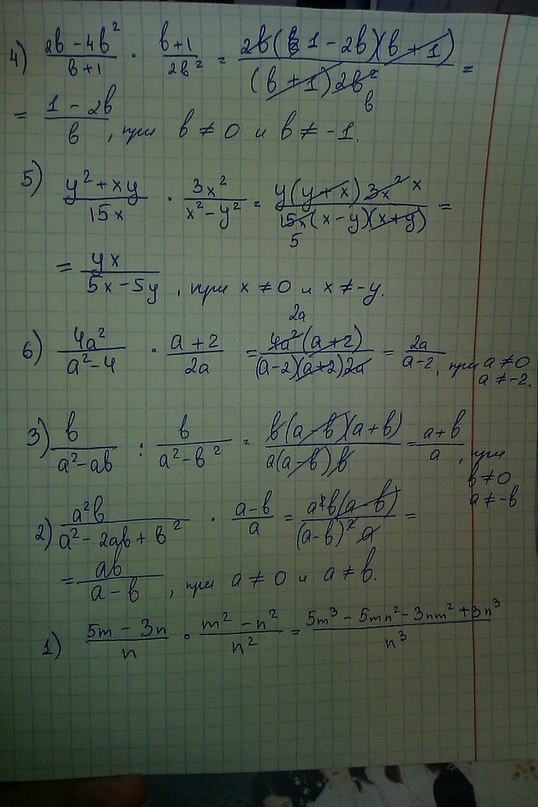 4) (2b - 4b²)/(b+1) · (b+1)/(2b²) = (2b(1 - 2b)(b + 1))/((b + 1)2b²) =
b
= (1 - 2b)/b, при b ≠ 0 и b ≠ -1.
5) (y² + xy)/(15x) · (3x²)/(x² - y²) = (y(y + x)3x² x)/(15x(x - y)(x + y)) =
5
= (yx)/(5x - 5y), при x ≠ 0 и x ≠ -y.
2a
6) (4a²)/(a² - 4) · (a + 2)/(2a) = (4a²(a+2))/((a-2)(a+2)2a) = (2a)/(a-2), при a ≠ 0
a ≠ -2.
3) b/(a² - ab) : b/(a² - b²) = (b(a - b)(a + b))/(a(a - b)b) = (a + b)/a, при
b ≠ 0
a ≠ -b
2) (a²b)/(a² - 2ab + b²) · (a - b)/a = (a²b(a - b))/((a - b)² a) =
= (ab)/(a - b), при a ≠ 0 и a ≠ b.
1) (5m - 3n)/n · (m² - n²)/n² = (5m³ - 5mn² - 3nm² + 3n³)/n³